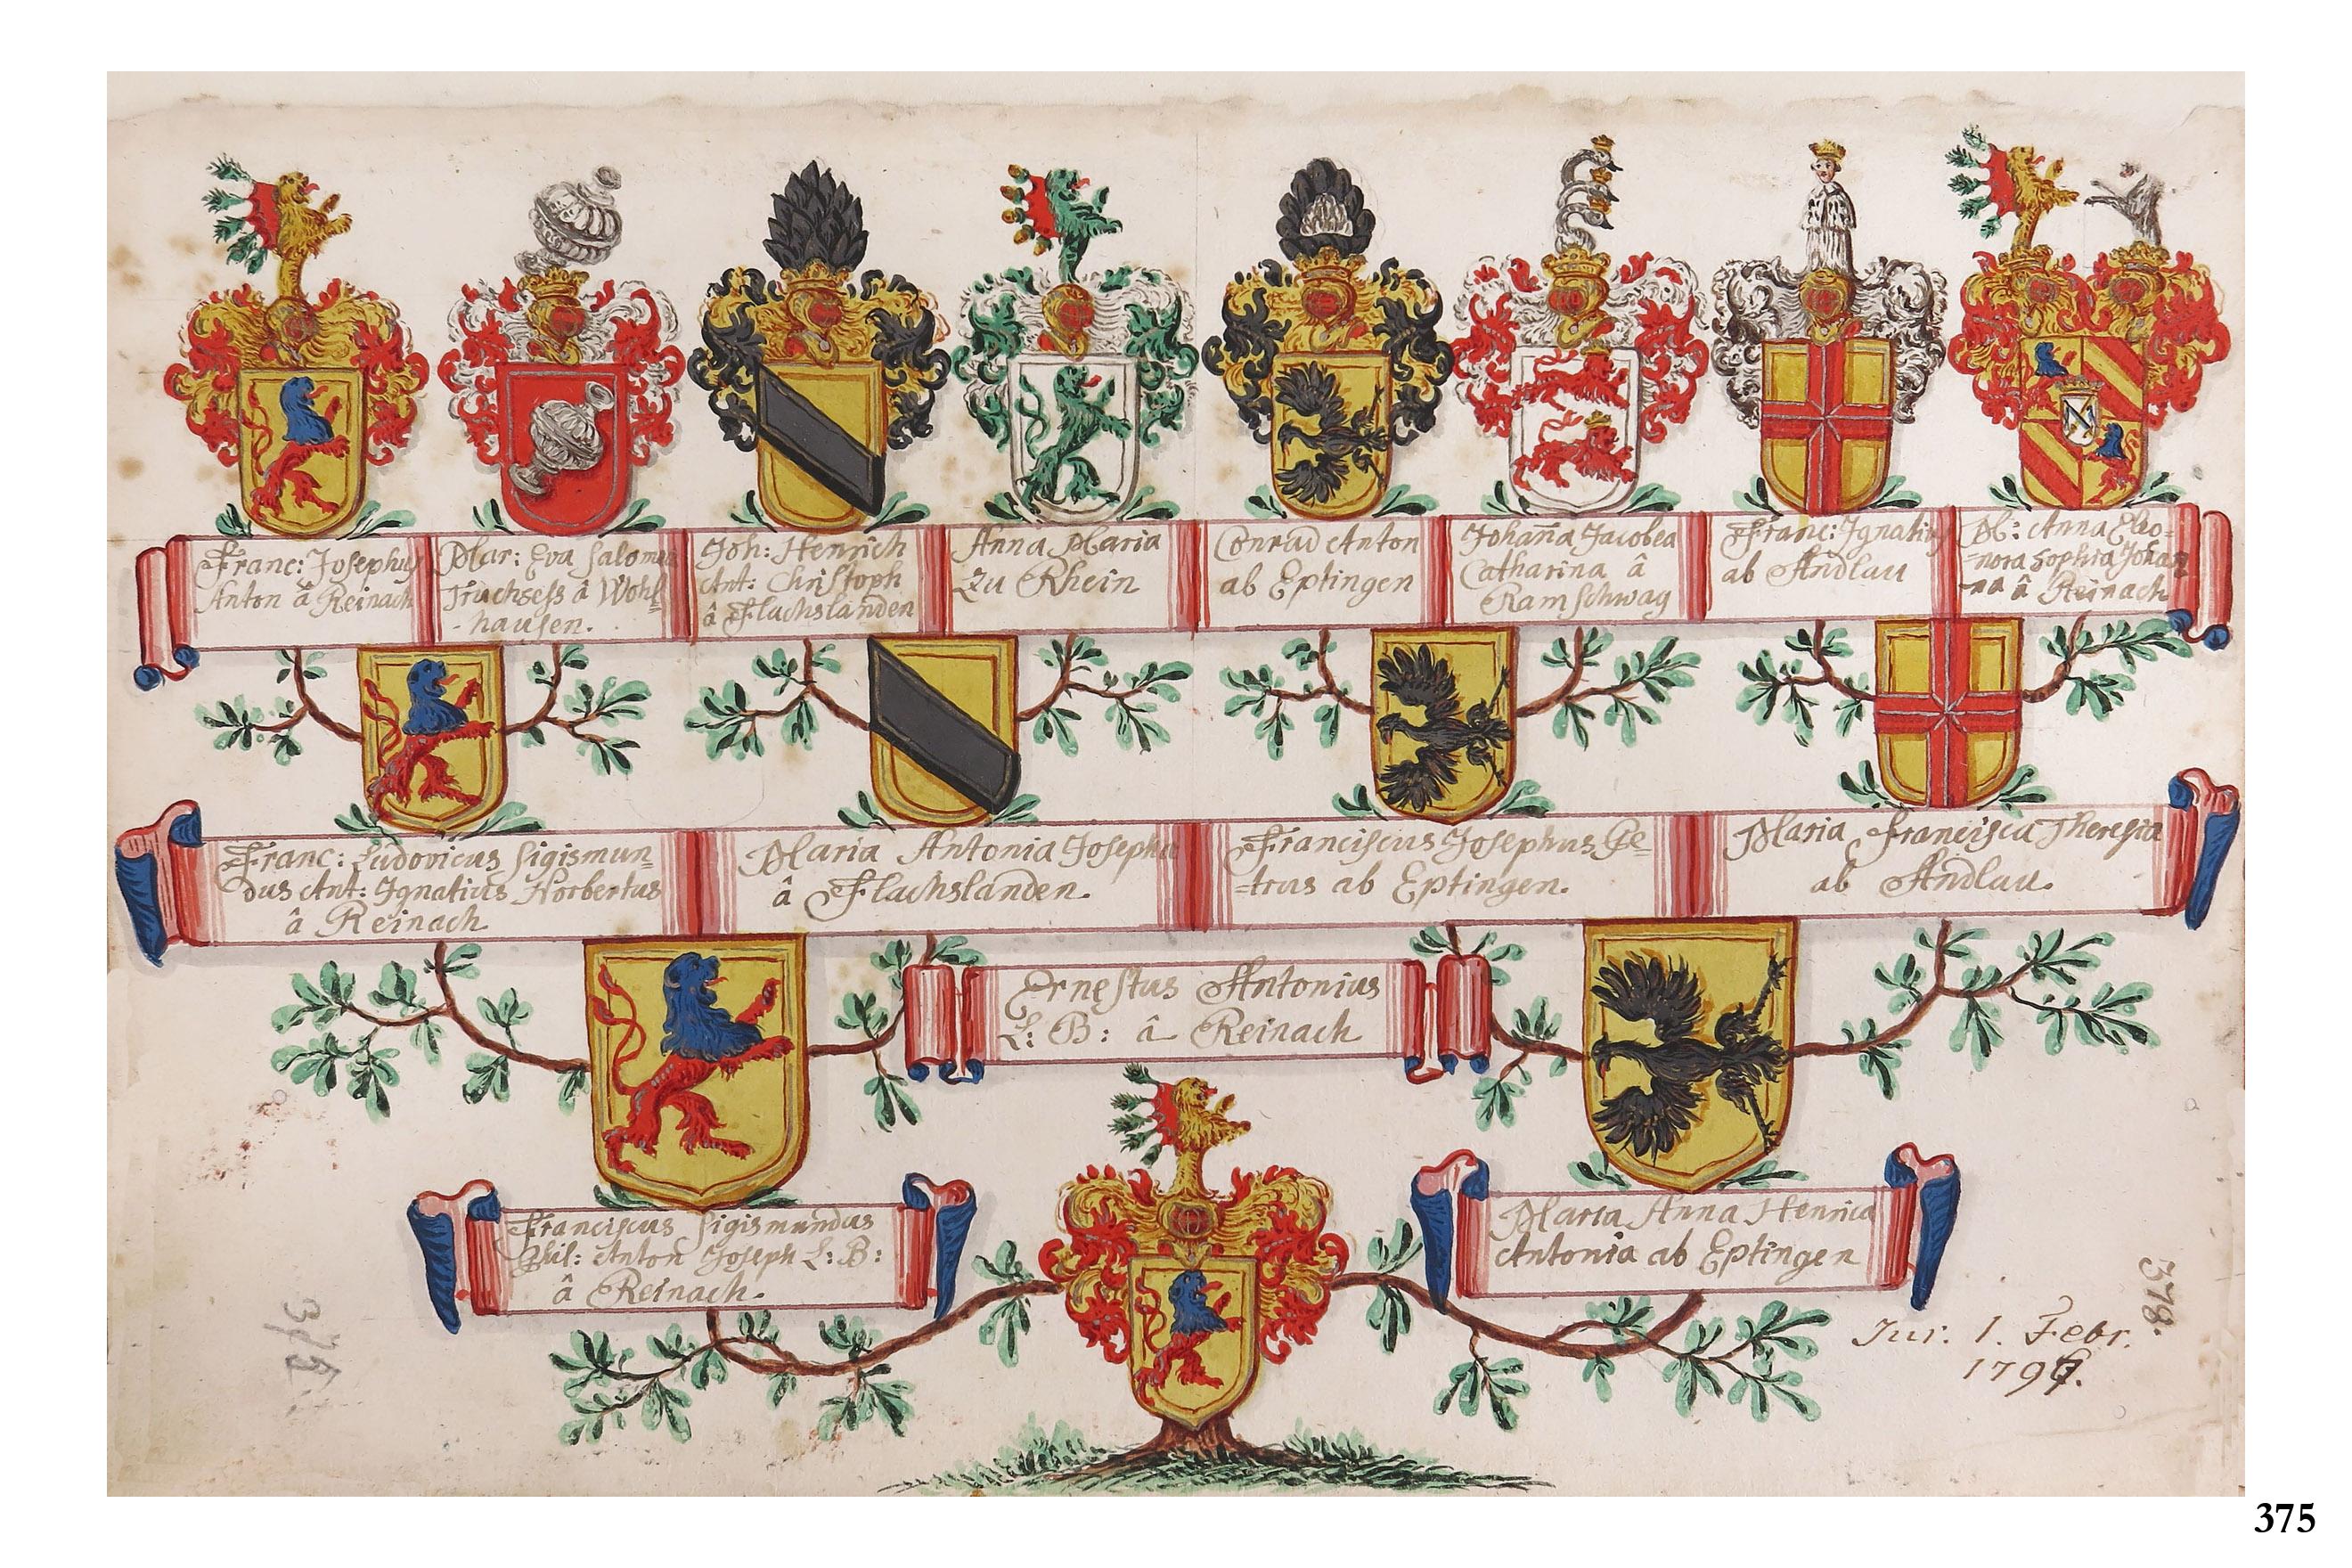 Franc: Josephus
Anton â Reinach
Mar: Eva Salomea
Truchsess â Wohl-
-hausen.
Joh: Henrich
Ant: Christoph
â Flachslanden
Anna Maria
Zu Rhein
Conrad Anton
ab Eptingen
Johaña Jacobea
Catharina â
Ramschwag
Franc: Ignatius
ab Andlau
M: Anna Eleo-
-nora Sophia Johan
-na â Reinach
Franc: Ludovicus Sigismun-
dus Ant: Ignatius Norbertus
â Reinach
Maria Antonia Josepha
â Flachslanden.
Franciscus Josephus Pe-
-trus ab Eptingen.
Maria Francisca Theresia
ab Andlau.
Ernestus Antonius
L: B: â Reinach
Franciscus Sigismundus
Phil: Anton Joseph L: B:
â Reinach.
Maria Anna Henrica
Antonia ab Eptingen
Jur. 1. Febr.
378.
375.
375